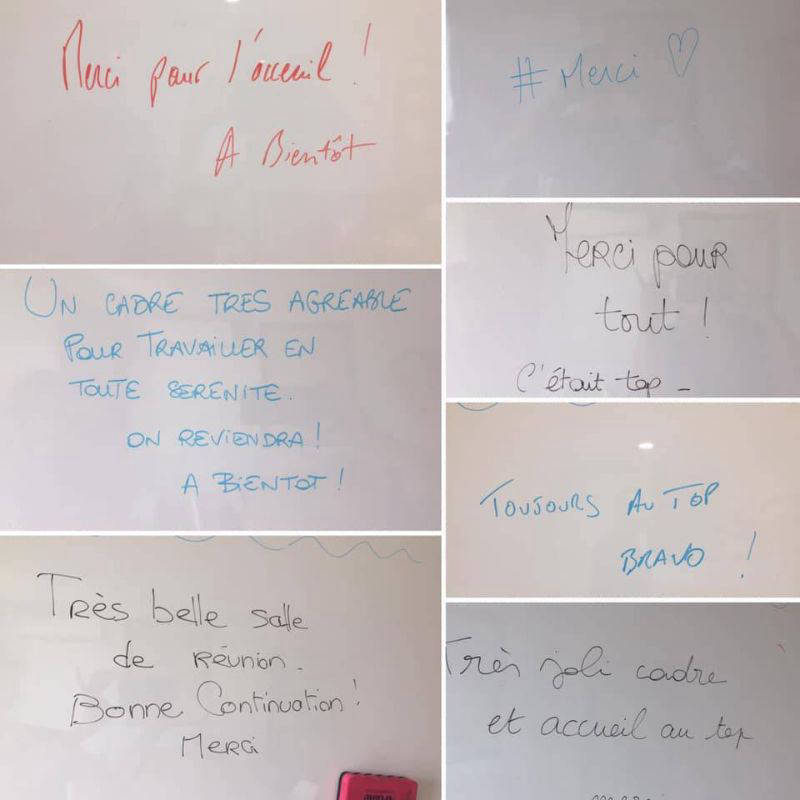 Merci pour l'acceuil !
A Bientôt
# Merci ♡
UN CADRE TRES AGREABLE
POUR TRAVAILLER EN
TOUTE SERENITE.
ON REVIENDRA !
A BIENTOT !
Merci pour
tout !
C'était top -
TOUJOURS AU TOP
BRAVO !
Très belle salle
de Réunion.
Bonne Continuation !
Merci
Très joli cadre
et accueil au top